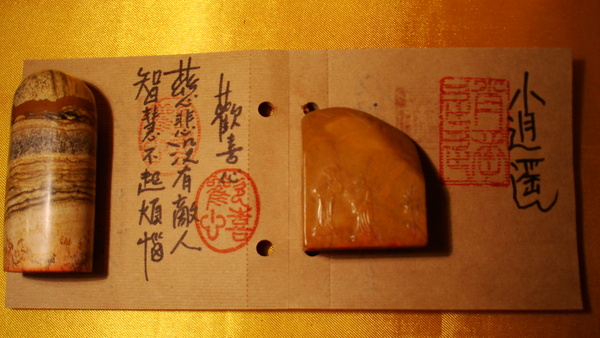 小逍遙
歡喜心
慈悲沒有敵人
智慧不起煩惱